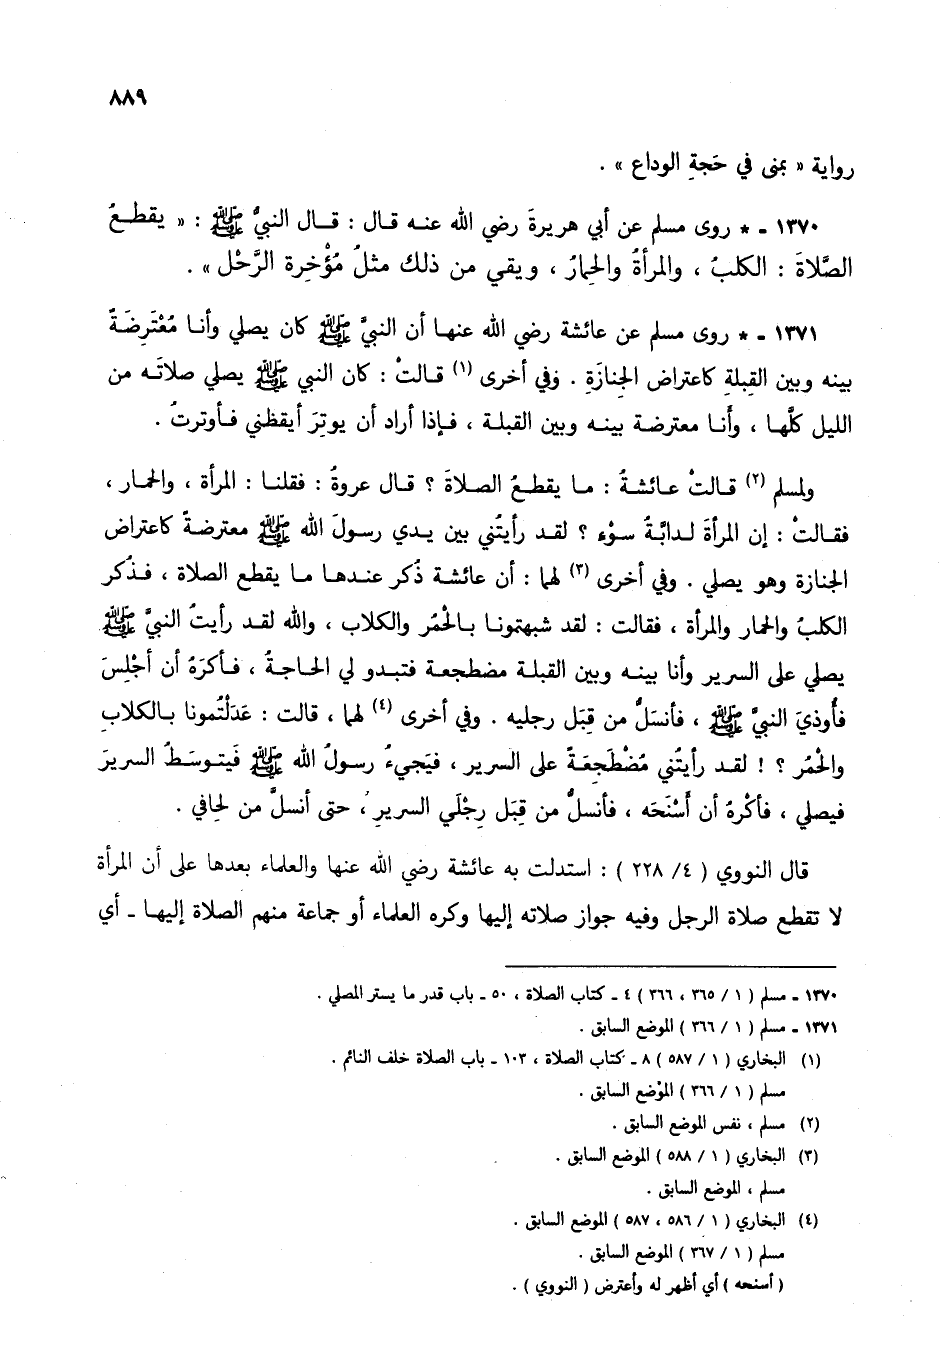 ٨٨٩
رواية « بمنى في حَجةِ الوداع » .
١٣٧٠ ـ * روى مسلم عن أبي هريرةَ رضي الله عنه قال : قال النبيُّ ﷺ : « يقطعُ
الصَّلاةَ : الكلبُ ، والمرأةُ والحِمارُ ، ويقي من ذلك مثلُ مُؤْخِرة الرَّحْل » .
١٣٧١ ـ * روى مسلم عن عائشة رضي الله عنها أن النبيَّ ﷺ كان يصلي وأنا مُعْتَرِضَةٌ
بينه وبين القِبلةِ كاعتراض الجِنازَةِ . وفي أخرى (١) قالتْ : كان النبي ﷺ يصلي صلاتَه من
الليل كلَّها ، وأَنا معترضة بينه وبين القبلة ، فإذا أراد أن يوتِرَ أيقظني فأوترتُ .
ولمسلم (٢) قالتْ عائشةُ : ما يقطعُ الصلاةَ ؟ قال عروةُ : فقلنا : المرأة ، والحمار ،
فقالتْ : إن المرأةَ لدابَّةُ سوْء ؟ لقد رأيتُني بين يدي رسولَ الله ﷺ معترضةً كاعتراض
الجنازة وهو يصلي . وفي أخرى (٣) لهما : أن عائشة ذُكر عندها ما يقطع الصلاة ، فذُكر
الكلبُ والحمار والمرأة ، فقالت : لقد شبهتمونا بالحُمُر والكلاب ، والله لقد رأيتُ النبيَّ ﷺ
يصلي على السرير وأنا بينه وبين القبلة مضطجعة فتبدو لي الحاجةُ ، فأكرَهُ أن أجْلِسَ
فأُوذيَ النبيَّ ﷺ ، فأنسَلُّ من قِبَل رجليه . وفي أخرى (٤) لهما ، قالت : عَدَلْتُمونا بالكلابِ
والحُمُر ؟ ! لقد رأيتُني مُضْطَجِعَةً على السرير ، فيَجيءُ رسولُ الله ﷺ فَيتوسَطُ السريرَ
فيصلي ، فأكْرهُ أن أَسْنَحَه ، فأنسلُّ من قِبَل رِجْلَي السريرِ ، حتى أنسلَّ من لحافي .
قال النووي ( ٤/ ٢٢٨ ) : استدلت به عائشة رضي الله عنها والعلماء بعدها على أن المرأة
لا تقطع صلاة الرجل وفيه جواز صلاته إليها وكره العلماء أو جماعة منهم الصلاة إليها ـ أي
١٣٧٠ ـ مسلم ( ١ / ٣٦٥ ، ٣٦٦ ) ٤ ـ كتاب الصلاة ، ٥٠ ـ باب قدر ما يستر المصلي .
١٣٧١ ـ مسلم ( ١ / ٣٦٦ ) الموضع السابق .
(١) البخاري ( ١ / ٥٨٧ ) ٨ ـ كتاب الصلاة ، ١٠٣ ـ باب الصلاة خلف النائم .
مسلم ( ١ / ٣٦٦ ) الموْضع السابق .
(٢) مسلم ، نفس الموضع السابق .
(٣) البخاري ( ١ / ٥٨٨ ) الموضع السابق .
مسلم ، الموضع السابق .
(٤) البخاري ( ١ / ٥٨٦ ، ٥٨٧ ) الموضع السابق .
مسلم ( ١ / ٣٦٧ ) الموضع السابق .
( أسنحه ) أي أظهر له وأعترض ( النووي ) .